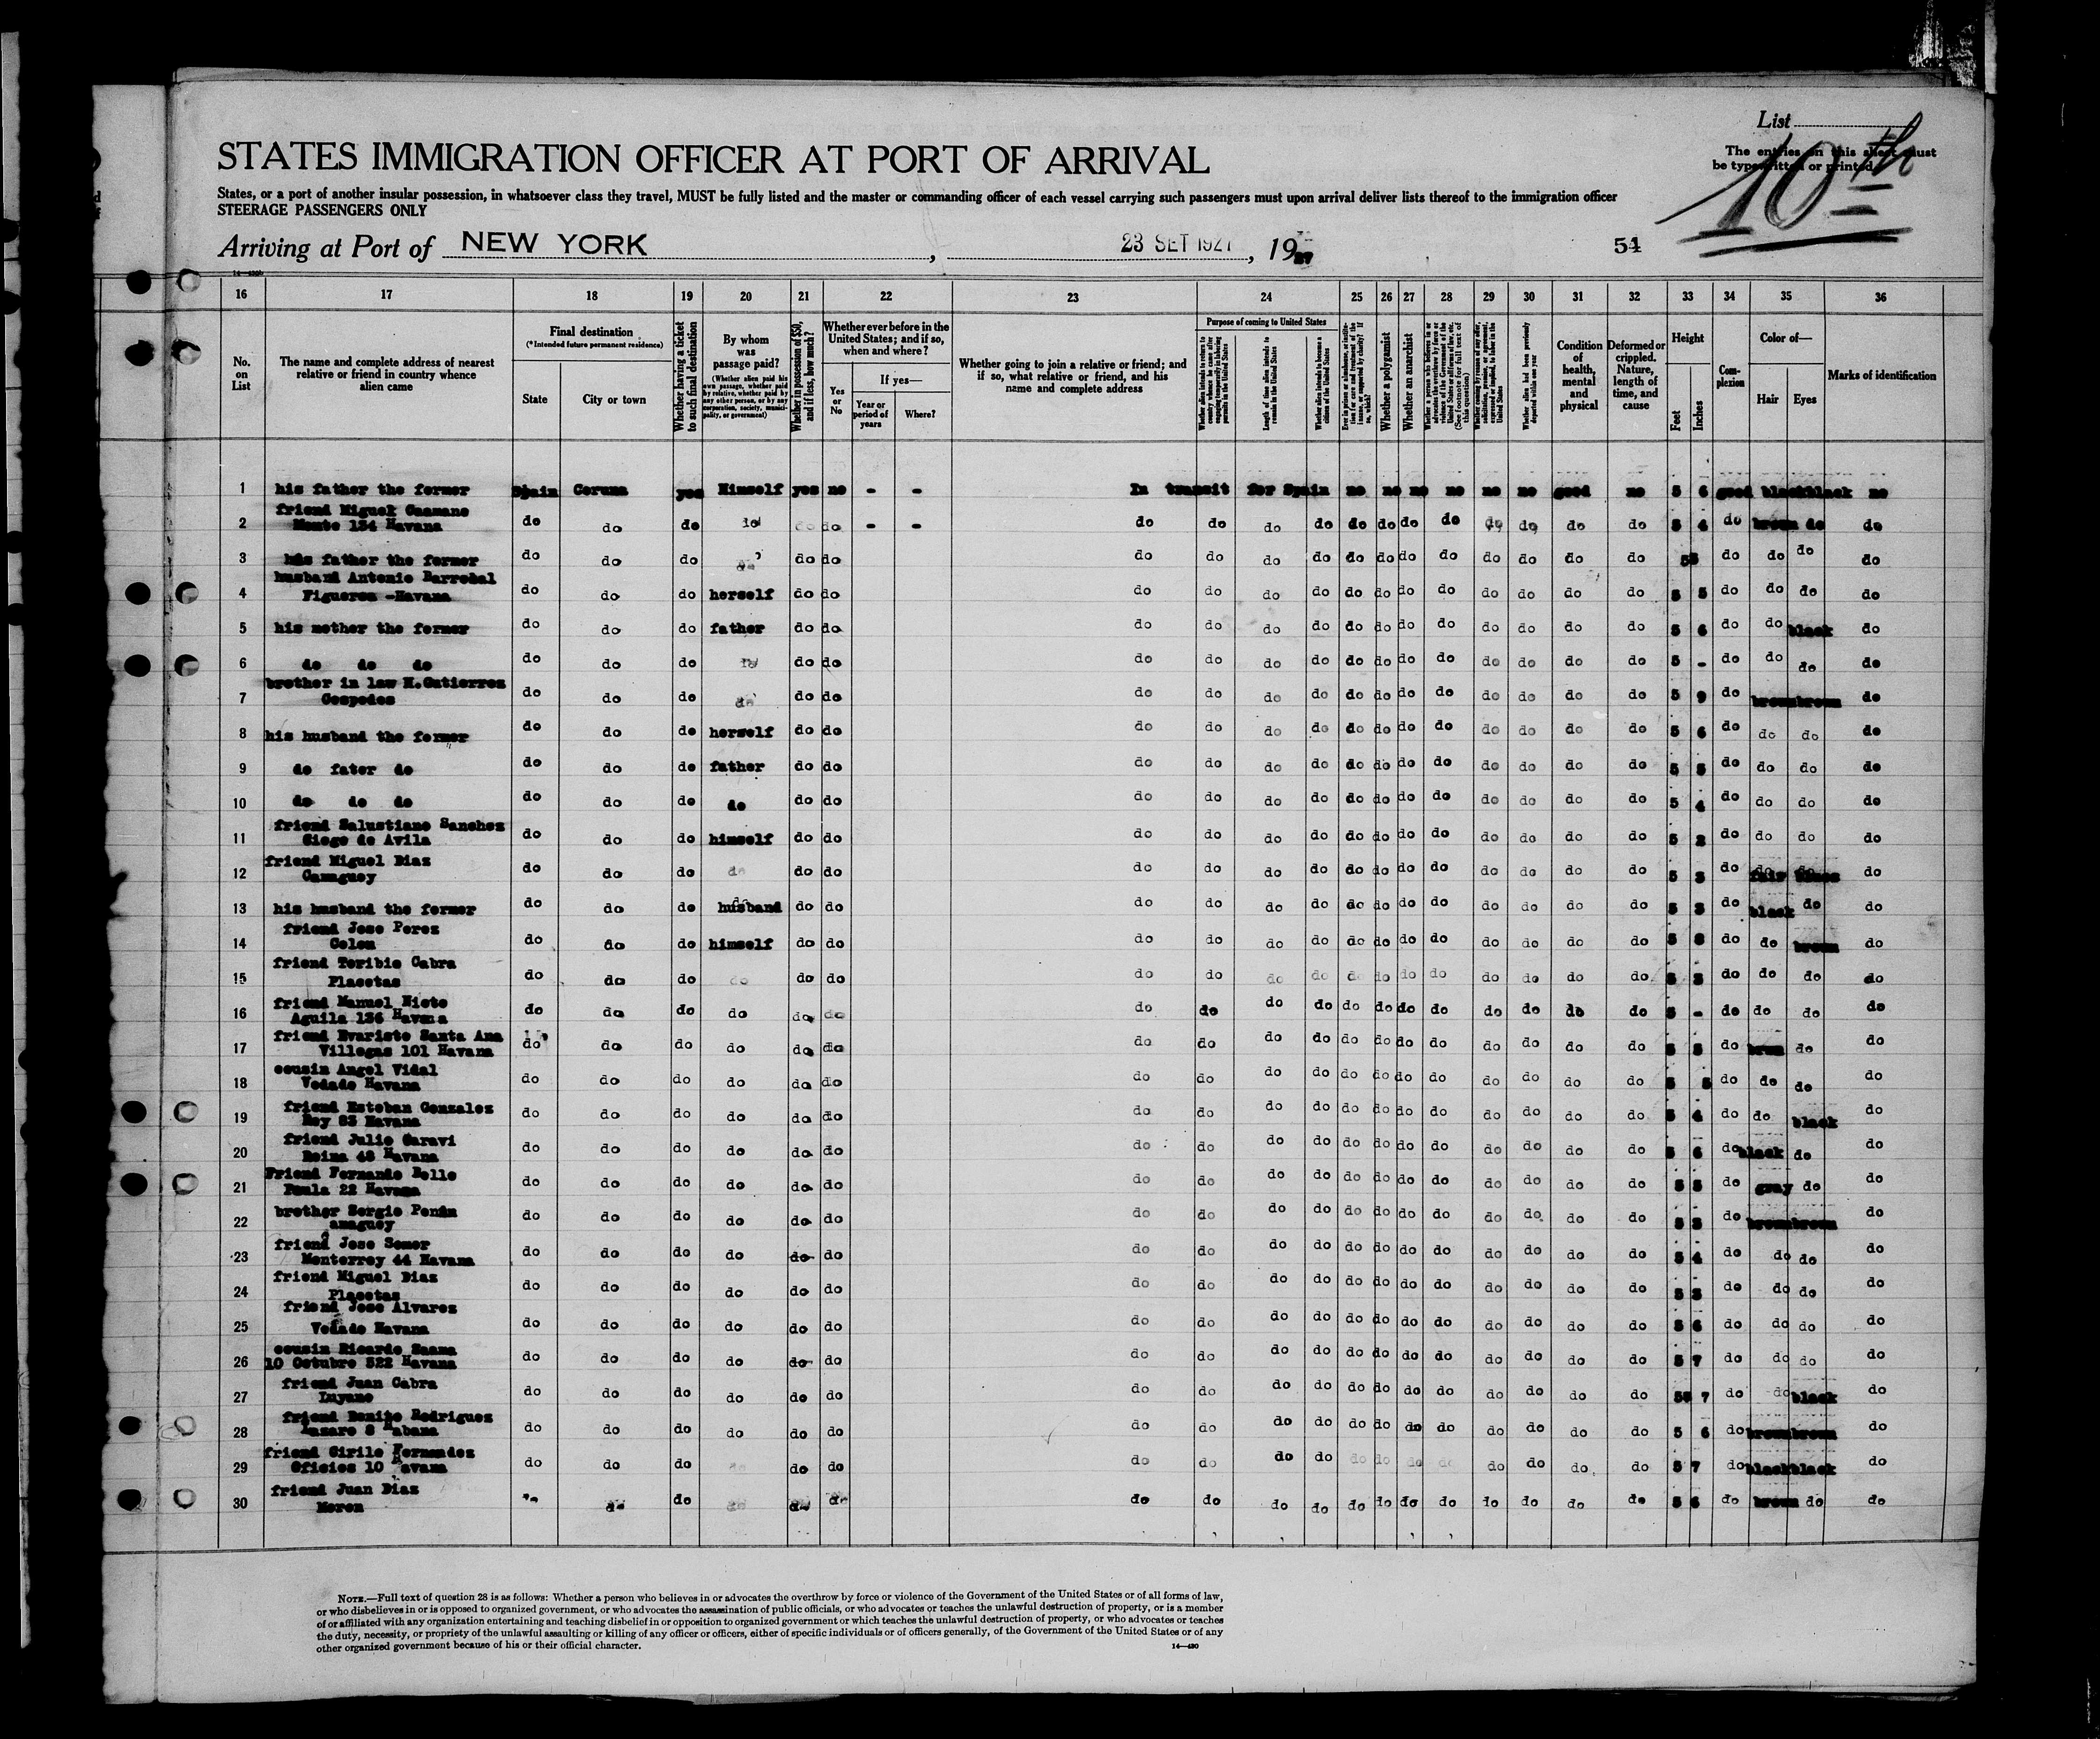 List
10th
The entries on this sheet must
be typewritten or printed
STATES IMMIGRATION OFFICER AT PORT OF ARRIVAL
States, or a port of another insular possession, in whatsoever class they travel, MUST be fully listed and the master or commanding officer of each vessel carrying such passengers must upon arrival deliver lists thereof to the immigration officer
STEERAGE PASSENGERS ONLY
Arriving at Port of NEW YORK, 23 SET 1927, 19 27 54
16 17 18 19 20 21 22 23 24 25 26 27 28 29 30 31 32 33 34 35 36
No. on List
The name and complete address of nearest relative or friend in country whence alien came
Final destination
(*Intended future permanent residence)
State
City or town
Whether having a ticket to such final destination
By whom was passage paid?
(Whether alien paid his own passage, whether paid by relative, whether paid by any other person, or by any corporation, society, municipality, or government)
Whether in possession of $50, and if less, how much?
Whether ever before in the United States; and if so, when and where?
Yes or No
If yes—
Year or period of years
Where?
Whether going to join a relative or friend; and if so, what relative or friend, and his name and complete address
Purpose of coming to United States
Length of time alien intends to remain in the United States
Whether alien intends to become a citizen of the United States
Whether a polygamist
Whether an anarchist
Whether alien had been previously deported within one year
Condition of health, mental and physical
Deformed or crippled. Nature, length of time, and cause
Height
Feet
Inches
Complexion
Color of—
Hair
Eyes
Marks of identification
1 his father the former Spain Coruna yes Himself yes no - - In transit for Spain no no no no no no good no 5 6 good black black no
2 friend Miguel Caamano
Monte 134 Havana do do do do do do - - do do do do do do do do do do do do 5 4 do brown do do
3 his father the former do do do do do do do do do do do do do do do do do do do do do
4 husband Antonio Barrobal
Figueroa -Havana do do do herself do do do do do do do do do do do do do do 5 5 do do do do
5 his mother the former do do do father do do do do do do do do do do do do do do 5 6 do do black do
6 do do do do do do do do do do do do do do do do do do do do do 5 - do do do do
7 brother in law M.Gutierrez
Cespedes do do do do do do do do do do do do do do do do do do 5 9 do brown brown do
8 his husband the former do do do herself do do do do do do do do do do do do do do 5 6 do do do do
9 do fater do do do do father do do do do do do do do do do do do do do 5 5 do do do do
10 do do do do do do do do do do do do do do do do do do do do do 5 4 do do do do
11 friend Salustiano Sanchez
Ciego de Avila do do do himself do do do do do do do do do do do do do do 5 2 do do do do
12 friend Miguel Dias
Camaguey do do do do do do do do do do do do do do do do do do 5 3 do fair do
13 his husband the former do do do husband do do do do do do do do do do do do do do 5 3 do black do do
14 friend Jose Perez
Colon do do do himself do do do do do do do do do do do do do do 5 8 do do brown do
15 friend Toribio Cabra
Placetas do do do do do do do do do do do do do do do do do do 5 3 do do do do
16 friend Manuel Nieto
Aguila 136 Havana do do do do do do do do do do do do do do do do do do 5 - do do do do
17 friend Evaristo Santa Ana
Villegas 101 Havana do do do do do do do do do do do do do do do do do do 5 5 do brwn do do
18 cousin Angel Vidal
Vedado Havana do do do do do do do do do do do do do do do do do do 5 5 do do do do
19 friend Esteban Gonzalez
Rey 83 Havana do do do do do do do do do do do do do do do do do do 5 4 do do black do
20 friend Julio Garavi
Reina 48 Havana do do do do do do do do do do do do do do do do do do 5 6 do black do do
21 Friend Fernando Bello
Paula 22 Havana do do do do do do do do do do do do do do do do do do 5 5 do gray do do
22 brother Sergio Penin
amaguey do do do do do do do do do do do do do do do do do do 5 3 do brown brown do
23 friend Jose Somer
Monterrey 44 Havana do do do do do do do do do do do do do do do do do do 5 4 do do do do
24 friend Miguel Dias
Placetas do do do do do do do do do do do do do do do do do do 5 3 do do do do
25 friend Jose Alvarez
Vedado Havana do do do do do do do do do do do do do do do do do do 5 6 do do do do
26 cousin Ricardo Saama
10 Octubre 522 Havana do do do do do do do do do do do do do do do do do do 5 7 do do do do
27 friend Juan Cabra
Luyano do do do do do do do do do do do do do do do do do do 7 do do black do
28 friend Benito Rodriguez
Lazaro 8 Habana do do do do do do do do do do do do do do do do do do 5 6 do brown brown do
29 friend Cirilo Fernandez
Oficios 10 Havana do do do do do do do do do do do do do do do do do do 5 7 do black black do
30 friend Juan Dias
Moron do do do do do do do do do do do do do do do do do do 5 6 do brown do do
NOTE.—Full text of question 28 is as follows: Whether a person who believes in or advocates the overthrow by force or violence of the Government of the United States or of all forms of law,
or who disbelieves in or is opposed to organized government, or who advocates the assassination of public officials, or who advocates or teaches the unlawful destruction of property, or is a member
of or affiliated with any organization entertaining and teaching disbelief in or opposition to organized government or which teaches the unlawful destruction of property, or who advocates or teaches
the duty, necessity, or propriety of the unlawful assaulting or killing of any officer or officers, either of specific individuals or of officers generally, of the Government of the United States or of any
other organized government because of his or their official character.
14—430